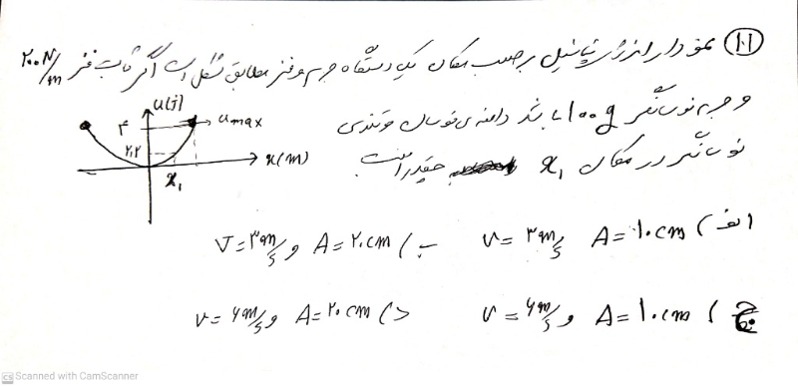 ۱۰۱) نمودار انرژی پتانسیل برحسب مکان یک دستگاه جرم و فنر مطابق شکل است اگر ثابت فنر ۲۰۰ N/m
و جرم نوسانگر ۱۰۰g باشد دامنه‌ی نوسان و تندی
نوسانگر در مکان x₁ چقدر است
u(j)
۴ umax
۲٫۲
x(m)
x₁
الف) A=۱۰cm و v=۳m/s ب) A=۲۰cm و V=۳m/s
ج) A=۱۰cm و v=۶m/s د) A=۲۰cm و v=۶m/s
CS Scanned with CamScanner